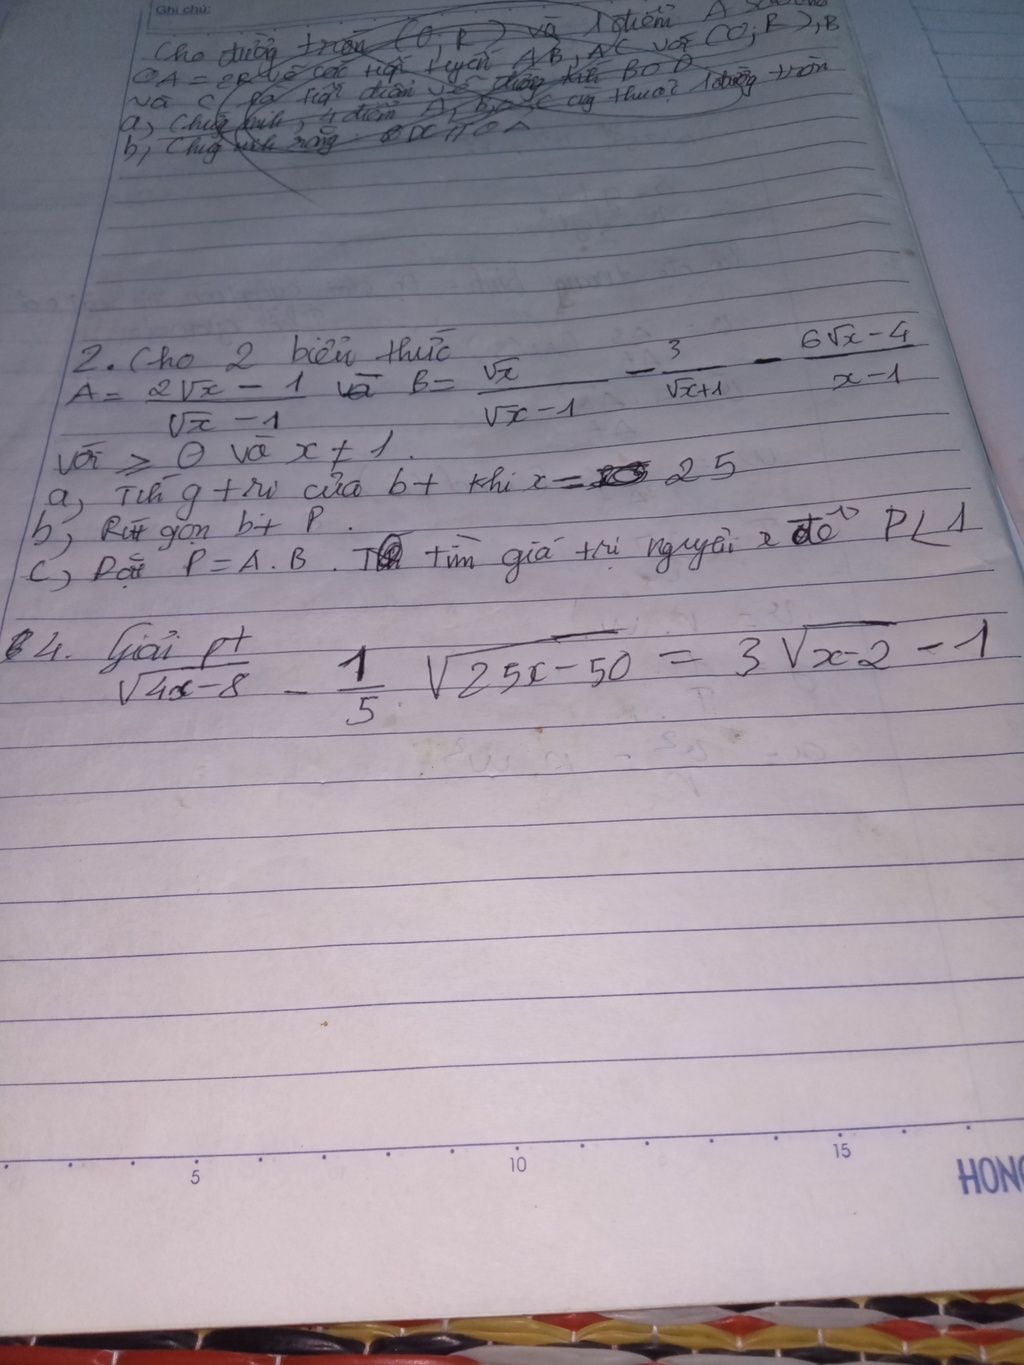 Ghi chú:
Cho đường tròn (O; R) và 1 điểm A sao cho
OA = 2R vẽ các tiếp tuyến AB, AC với (O; R), B
và C là tiếp điểm vẽ đường kính BOD
a, Chứng minh, 4 điểm A, B, O, C cùng thuộc 1 đường tròn
b, Chứng minh rằng: DC // OA
2. Cho 2 biểu thức
A = (2√x - 1)/(√x - 1) và B = √x/(√x - 1) - 3/(√x+1) - (6√x - 4)/(x - 1)
với ≥ 0 và x ≠ 1.
a, Tính g trị của bt khi x = 25
b, Rút gọn bt P.
c, Đặt P = A.B. tìm giá trị nguyên x để P < 1
4. Giải pt
√(4x-8) - 1/5 √(25x-50) = 3√(x-2) - 1
5
10
15
HONG